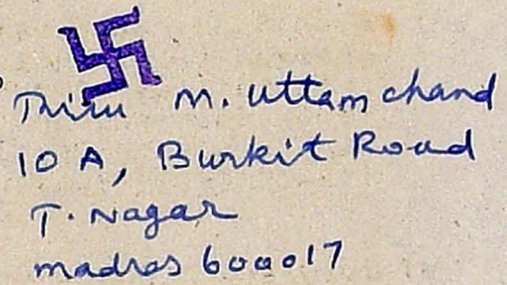 Thiru M. Uttam chand
10 A, Burkit Road
T. Nagar
madras 600017